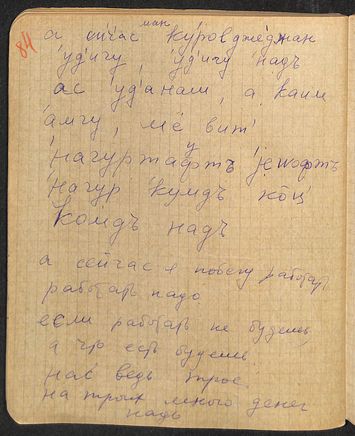 84
ман
а си́час ку́ровдже́джан
у́д'и́гу, у́д'и́гу надъ
ас у́д'анаш, а каим
а́мгу, ме́ вит'
на́гур
на́гур кумдъ
комдъ надъ
а сейчас я побегу работать
работать надо
если работать не будешь
а что есть будешь
нас ведь трое,
на троих много денег
надъ